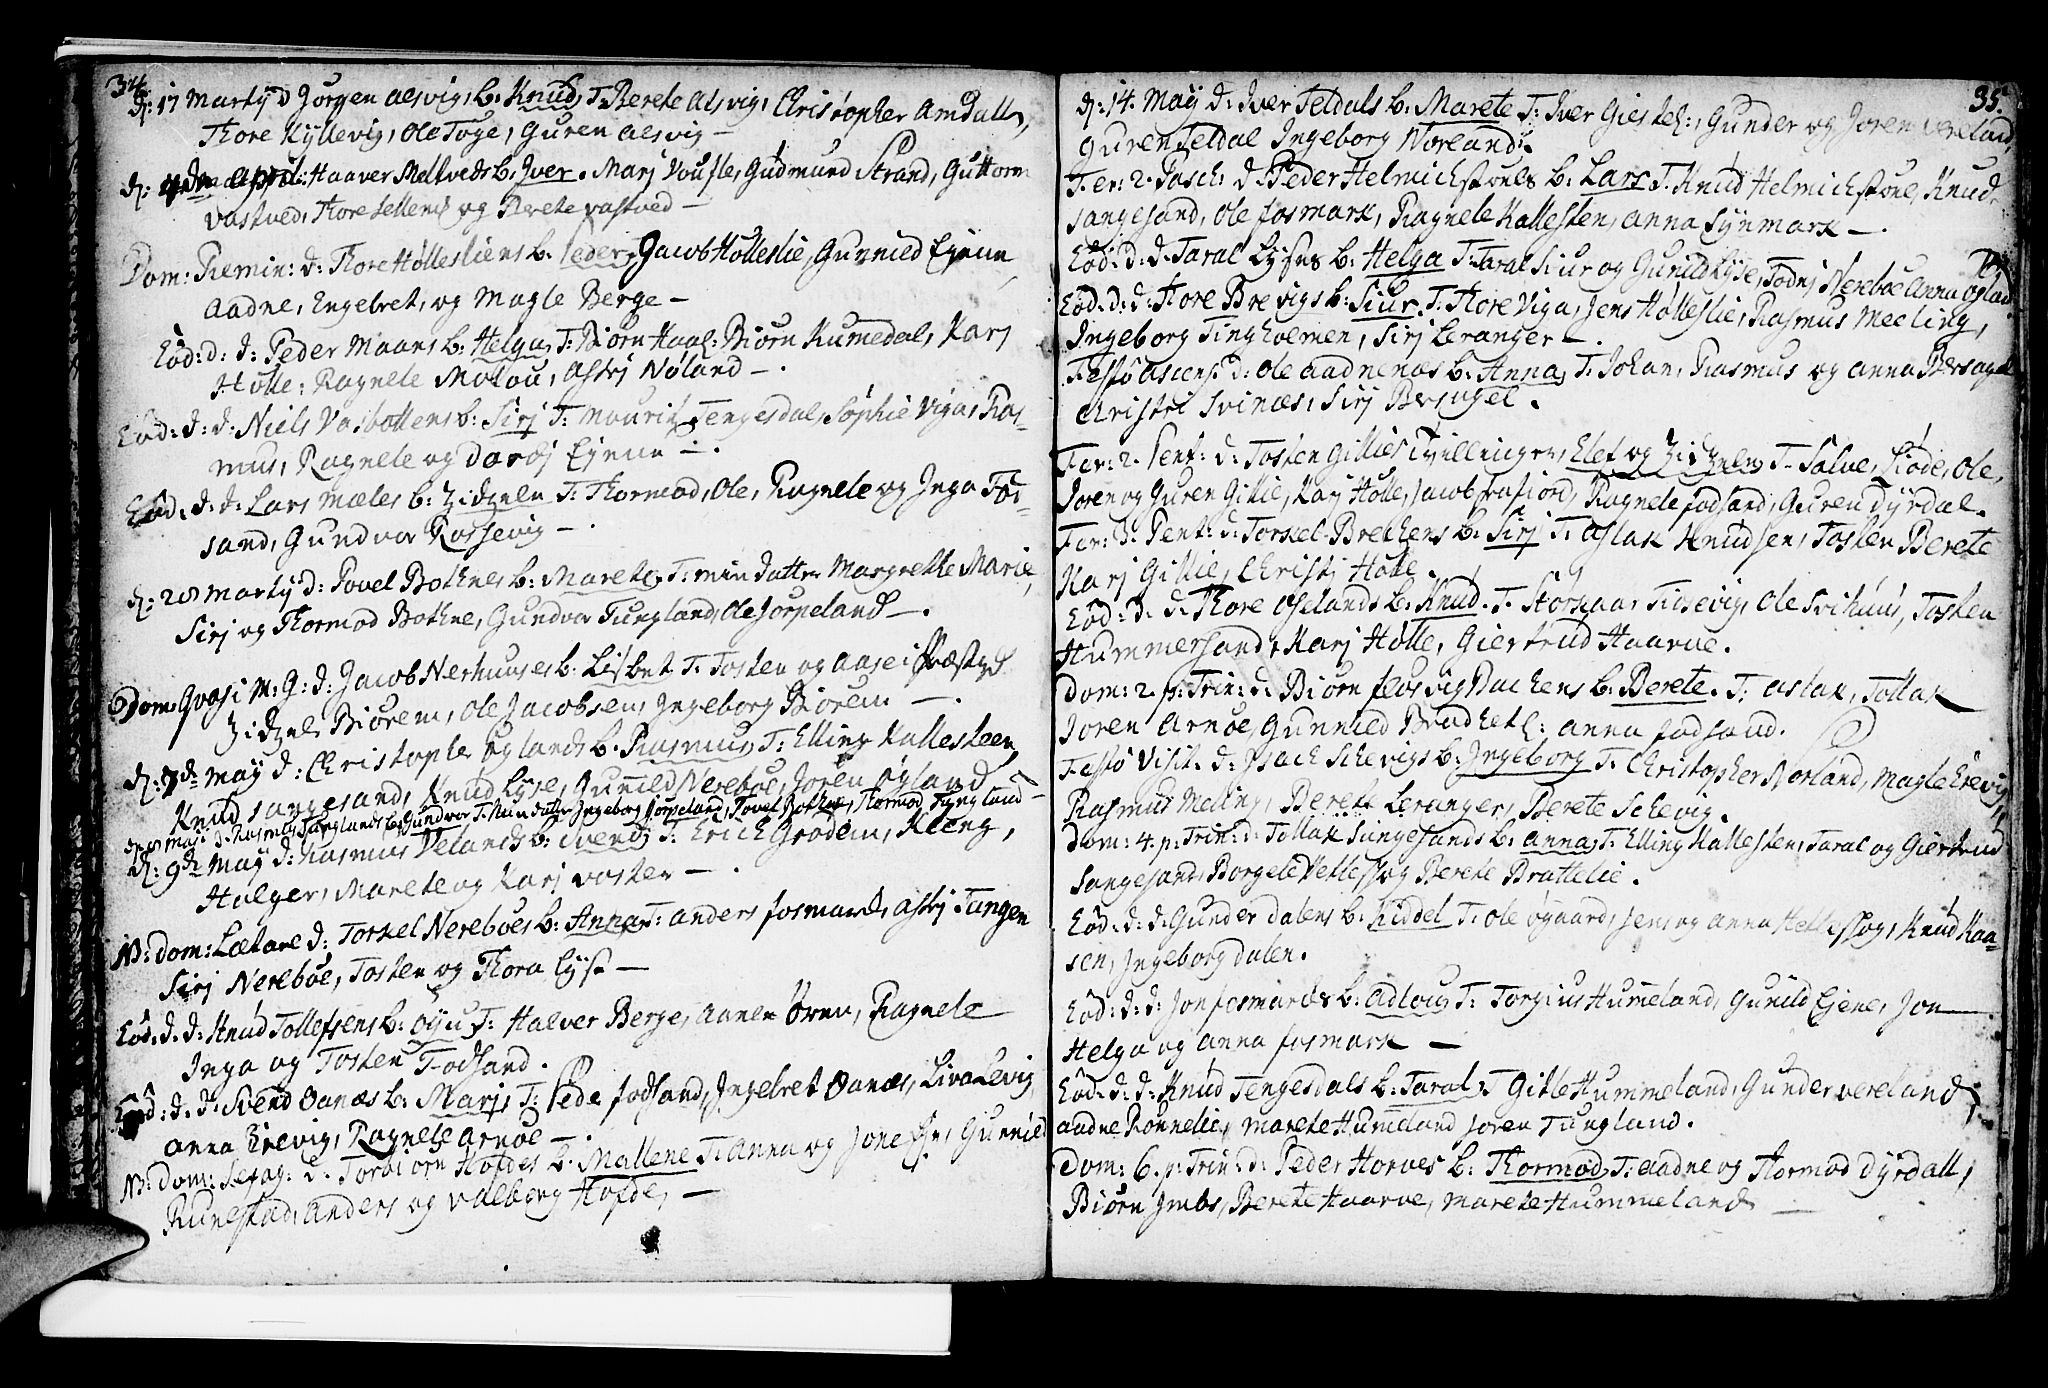 34.
d: 17 Martÿ d Jørgen Alsvig, b. Knud, T: Berete Alsvig, Christopher Amdall,
Thore Kyllevig, Ole Toge, Guren Alsvig —
d: April: Haaver Meltveds b. Jver. Marj Voufle, Gudmund Strand, Guttorm
Vastved, Thore Sellemd og Berete Vastved —
Dom: Remin: d: Thore Hølleslies b. Peder, Jacob Hølleslie, Gunnild Ejene
Aadne, Engebret, og Magle Berge —
Eod: d: d: Peder Maans b: Helga, T: Biørn Haal: Biørn Kumedal, Karj
Holle: Ragnele Molou, Astrj Nøland —.
Eod: d: d: Niels Vasbottens b: Sirj T: Mouritz Tengesdal, Sophie Viga, Ras-
mus, Ragnele og Dordj Ejene —.
Eod: d: d: Lars Mæles b: Zidzele T: Thormod, Ole, Ragnele og Inga Fos-
sand, Gundvor Rossevig —.
d: 28 Martÿ d: Povel Bothnes b: Marete, T: min datter Margrethe Marie,
Sirj og Thormod Bothne, Gundvor Tungland, Ole Jørpeland —.
Dom: Qvasi M: G: d: Jacob Nerhuuses b: Lisbet T: Tosten og Aase i Præstgd
Zidzel Biørem, Ole Jacobsen, Ingeborg Biørem —.
d: 7de May d: Christopher Øglands b. Rasmus, T: Elling Kallesteen,
Knud Sangesand, Knud Lyse, Gunnild Nerebøe, Joren Øgland —
d: 8 Maji d: Rasmus Tunglands b. Gundvor T: Min datter Ingeborg Jørpeland, Povel Bothne, Thormod Tungland
d: 9de May d: Rasmus Velands b: Svend, T: Erich Grødem, Kleng,
Holger, Marete og Karj Voster —.
N: Dom: Lætare d: Torkel Nerebøes b: Anna T: Anders Fosmark, Astrj Tungen
Sirj Nerebøe, Tosten og Thora Lyse —
Eod. d. d: Knud Tollefsens b: Øyu, T: Halver Berge, Anne Øren, Ragnele
Inga og Tosten Fodsand.
Eod: d. d: Svend Oanæs b: Marj, T: Pede Fodsand, Ingebret Oanæs, Liva Levig
Anna Erevig, Ragnele Arnøe —.
N: Dom: Sexag: d. Torbiørn Hofdes b. Mallene T. Anna og Jone Gunnild
Runestad, Anders og Valborg Hofde, —
35.
d: 14. May d: Iver Seldals b. Marete T: Iver Giest: Gunder og Joren Vereland,
Guren Seldal Ingeborg Norland:
Fer: 2. Pasch: d. Peder Helmichstøls b. Lars T. Knud Helmichstøl, Knud
Sangesand, Ole Fosmark, Ragnele Kallesten, Anna Synmark —.
Eod: d: d. Taral Lyses b. Helga T. Taral Siur og Gunild Lyse, Todnj Nerebøe Anna Øgland
Eod: d: d: Thore Brevigs b: Siur T. Thore Viga, Jens Hølleslie, Rasmus Meeling,
Ingeborg Tingholmen, Sirj Leranger —.
Festo Ascens. d: Ole Aadnenæs b. Anna, T. Johan, Rasmus og Anna Bersagel
Christi Svinæs, Sirj Bersagel.
Fer: 2. Pent: d: Tosten Gillies Tvillinger, Elef og Zidzele T. Salve, Siøde, Ole,
Joren og Guren Gillie, Karj Holle, Jacob Frafiord, Ragnele Fodsand, Guren Dyrdal.
Fer: 3. Pent: d: Torkel Brekkens b. Sirj T. Aslak Knudsen, Tosten Berete
Karj Gillie, Christj Holle.
Eod: d. d. Thore Oselands b. Knud. T. Storkaar Fidsevig, Ole Svihuus, Tosten
Hummersand, Karj Holle, Giertrud Haarve.
Dom: 2. p: Trin: d. Biørn Flosvig Bakens b. Berete. T: Aslak, Tollak
Joren Arnøe, Gunnild Anna Fodsand.
Festo Visit. d. Isach Schevigs b. Ingeborg T. Christopher Norland, Magle Erevig,
Rasmus Meling, Berete Leranger, Berete Schevig.
Dom: 4. p: Trin: d: Tollak Sungesands b. Anna, T. Elling Kallesten, Taral og Giertrud
Sangesand, Borgele og Berete Brattelie.
Eod: d: d. Gunder Dalens b. Kiddel T. Ole Øgaard, Jens og Anna Helleskog, Knud Kaa-
sen, Ingeborg Dalen.
Eod: d: d: Jon Fosmarks b. Adlou, T. Torgius Hummeland, Gunild Ejene, Jon
Helga og Anna Fosmark —
Eod: d: d: Knud Tengesdals b. Taral, T Gitle Hummeland, Gunder Vereland
Aadne Rønnelie, Marete Hummeland Joren Tungland.
Dom: 6. p: Trin: d. Peder Horves b. Thormod, T. Aadne og Thormod Dyrdall,
Biørn Imbs, Berete Haarve, Marete Hummeland —